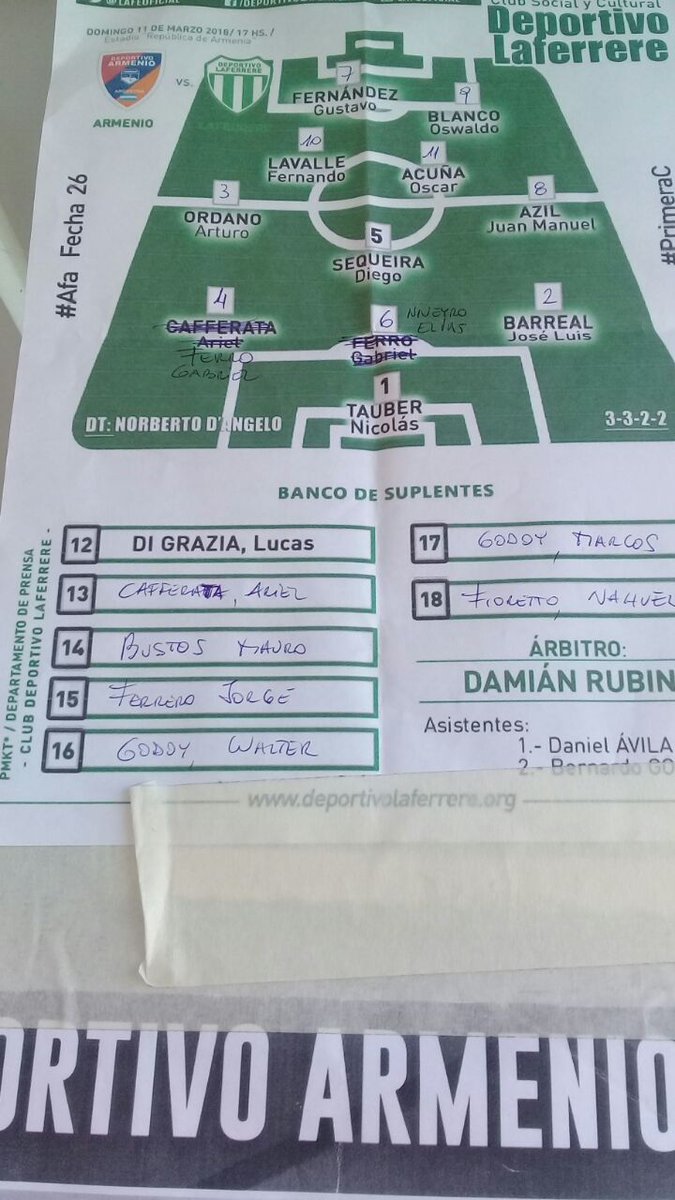 /LAFEOFICIAL
Club Social y Cultural
Deportivo
Laferrere
DOMINGO 11 DE MARZO 2018/ 17 HS. /
Estadio "República de Armenia
DEPORTIVO
ARMENIO
ARGENTINA
VS.
DEPORTIVO
LAFERRERE
ARMENIO
#Afa Fecha 26
#PrimeraC
7
FERNÁNDEZ
Gustavo
9
BLANCO
Oswaldo
10
LAVALLE
Fernando
11
ACUÑA
Oscar
3
ORDANO
Arturo
8
AZIL
Juan Manuel
5
SEQUEIRA
Diego
4
CAFFERATA
Ariel
FERRO
GABRIEL
6
FERRO
Gabriel
ELIAS
2
BARREAL
José Luis
1
TAUBER
Nicolás
DT: NORBERTO D'ANGELO
3-3-2-2
BANCO DE SUPLENTES
12 DI GRAZIA, Lucas
13 CAFFERATA, ARIEL
14 BUSTOS MAURO
15 FERRERO JORGE
16 GODOY, WALTER
17 GODOY, MARCOS
18 FIORETTO, NAHUEL
ÁRBITRO:
DAMIÁN RUBIN
Asistentes:
1.- Daniel ÁVILA
2.- Bernardo GO
PMKT° / DEPARTAMENTO DE PRENSA
- CLUB DEPORTIVO LAFERRERE -
www.deportivolaferrere.org
ORTIVO ARMENIO